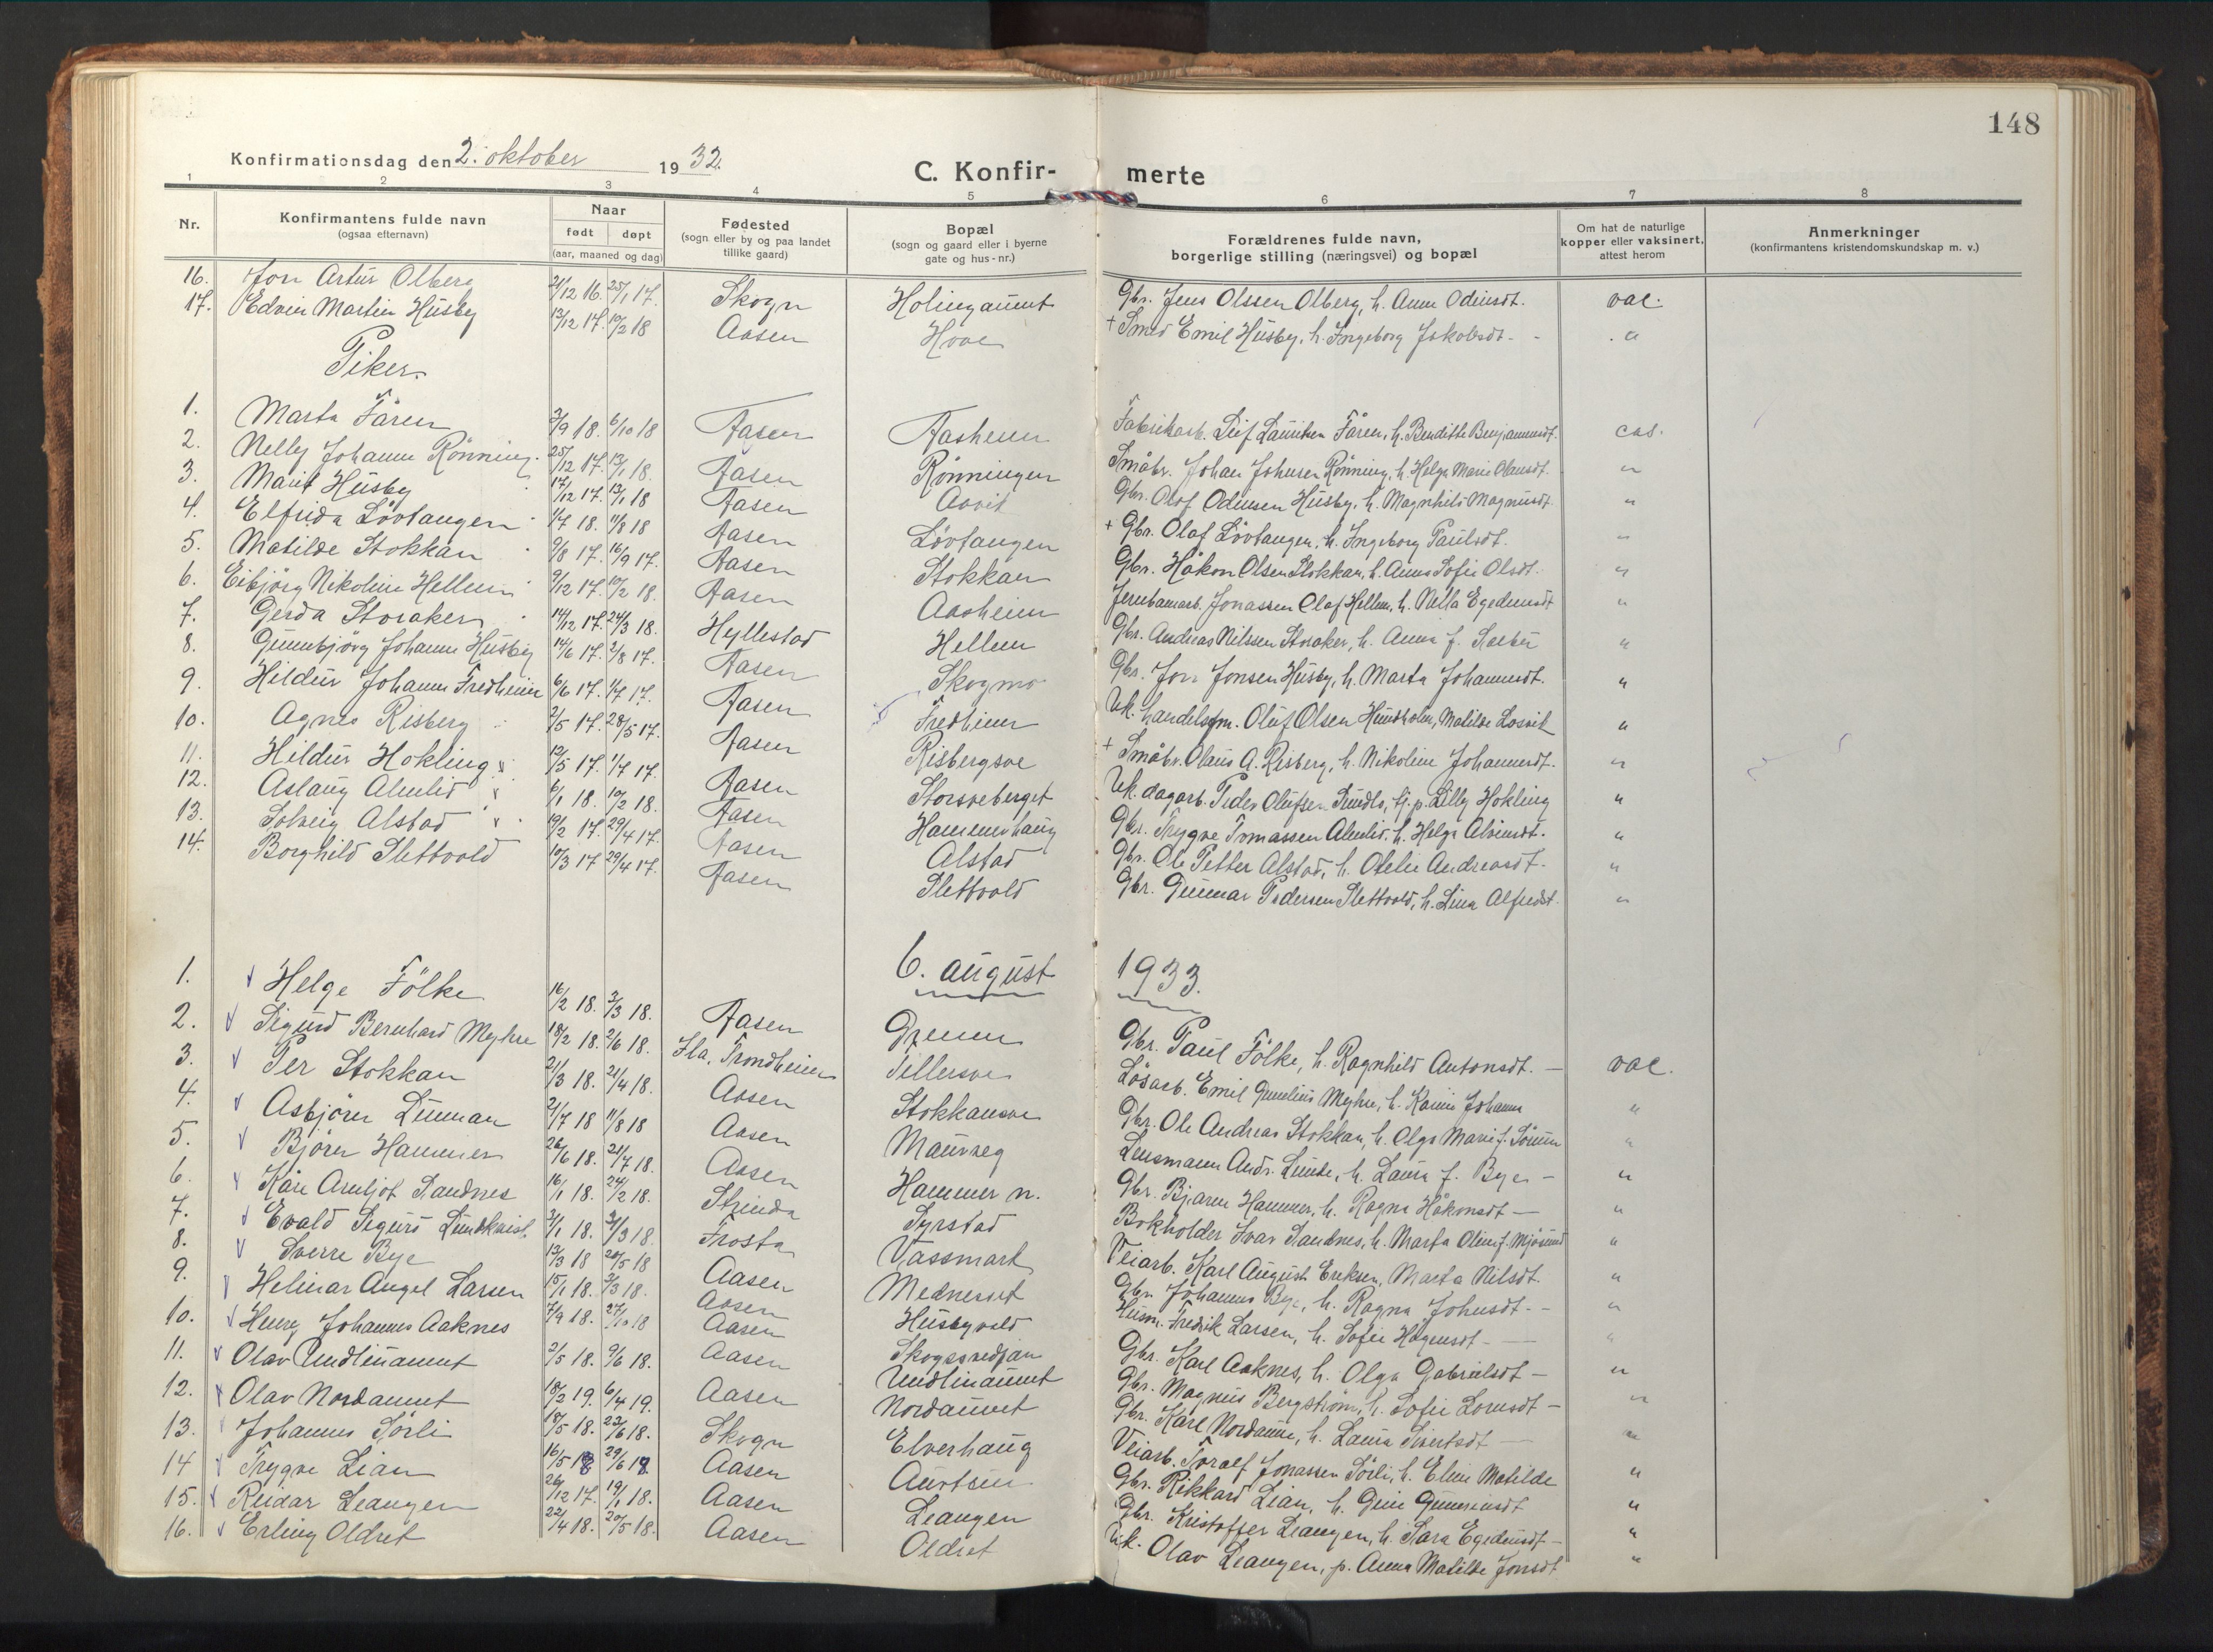 148
Konfirmationsdag den 2. oktober 1932.
C. Konfirmerte
1 2 3 4 5 6 7 8
Nr. Konfirmantens fulde navn (ogsaa efternavn) Naar født døpt (aar, maaned og dag) Fødested (sogn eller by og paa landet tillike gaard) Bopæl (sogn og gaard eller i byerne gate og hus-nr.) Forældrenes fulde navn, borgerlige stilling (næringsvei) og bopæl Om hat de naturlige kopper eller vaksinert, attest herom Anmerkninger (konfirmantens kristendomskundskap m. v.)
16. Jon Artur Olberg 21/12 16. 25/1 17. Skogn Holingaunet Gbr. Jens Olssen Olberg, h. Anna Odinsdt. vac.
17. Edvin Martin Husby 13/12 17. 10/2 18 Aasen Hove + Smed Emil Husby, h. Ingeborg Jakobsdt. - "
Piker.
1. Marta Fåren 3/9 18. 6/10 18 Aasen Aasheim Fabrikarb. Leif Lauritsen Fåren, h. Benditte Benjaminsdt.
2. Nelly Johanna Rönning. 25/12 17. 13/1 18. Aasen Rönningen Småbr. Johan Johnsen Rönning, h. Helga Marie Olausdt. "
3. Marit Husby 17/12 17. 13/1 18 Aasen Gbr. Olof Odinsen Husby, h. Magnhild Magnusdt. "
4. Elfrida Lövtangen 1/7 18. 11/8 18 Aasen Lövtangen + Gbr. Olaf Lövtangen, h. Ingeborg Paulsdt. "
5. Matilde Stokkan 9/8 17. 16/9 17. Aasen Stokkan Gbr. Håkon Olsen Stokkan, h. Anna Sofie Olsdt. "
6. Eibjörg Nikoline Hellem 9/12 17. 10/2 18. Aasen Aasheim Jernbanearb. Jonassen Olaf Hellem, h. Nella Egedeusdt "
7. Gerda Storaker 14/12 17. 24/3 18. Hyllestad Hellem Gbr. Andreas Nilssen Storaker, h. Anna f. "
8. Gunnbjörg Johanna Husby 14/6 17. 2/8 17. Aasen Skogmo Gbr. Jon Jonsen Husby, h. Marta Johannesdt. "
9. Hildur Johanna Fredheim 6/6 17. 1/7 17. Aasen Fredheim Uk. handelsfm. Oluf Olsen Hundholm, Matilde Losvik "
10. Agnes Risberg 2/5 17. 28/5 17. Aasen Risbergsve + Småbr. Olaus A. Risberg, h. Nikoline Johannesdt. "
11. Hildur Hokling 12/5 17. 1/7 17. Aasen Storsveberget Uk. dagarb. Peder Olufsen Sundlo, tj.p. Lilly Hokling "
12. Aslaug Almlid x 6/1 18. 10/2 18. Aasen Hammerhaug Gbr. Trygve Tomassen Almlid, h. Helga Alvinsdt. "
13. Solveig Alstad x 19/2 17. 29/4 17. Aasen Alstad Gbr. Ole Petter Alstad, h. Otelie Andreasdt. "
14. Borghild Slettvold 10/3 17 29/4 17. Aasen Slettvold Gbr. Gunnar Pedersen Slettvold, h. Lina Alfredsdt. "
6. august 1933.
1. Helge Fölke 16/2 18. 3/3 18. Aasen Grenen Gbr. Paul Fölke, h. Ragnhild Antonsdt. - vac.
2. Sigurd Bernhard Myhre 18/2 18. 2/6 18. Ila, Trondheim Tillersve Lösarb. Emil Gunelius Myhre, h. Karine Johanna "
3. Per Stokkan 21/3 18. 21/4 18. Aasen Stokkansve Gbr. Ole Andreas Stokkan, h. Olga Marie f. "
4. Asbjörn 21/7 18 11/8 18 Aasen Lensmann Andr. h. Laura f. Bye - "
5. Björn Hammer 26/6 18. 21/7 18. Aasen Hammer n. Gbr. Bjarne Hammer, h. Ragna Håkonsdt - "
6. Kåre Arnljot Sandnes 16/1 18. 24/2 18. Strinda Syrstad Bokholder Ivar Sandnes, h. Marta Oline f. Mjösund "
7. Evald Sigurd Lundkvist 3/1 18. 31/3 18. Frosta Vassmark Veiarb. Karl August Eriksen, Marta Nilsdt. "
8. Sverre Bye 13/3 18 20/5 18 Aasen Mednesset Gbr. Johannes Bye, h. Ragna Johnsdt. - "
9. Helmar Angel Larsen 15/1 18. 3/3 18. Aasen Husbyvald Husm. Fredrik Larsen, h. Sofie Hågensdt - "
10. Henry Johannes Aaknes 7/9 18. 27/10 18 Aasen Gbr. Karl Aaknes, h. Olga Gabrielsdt - "
11. Olav Undlinaunet 2/5 18. 9/6 18. Aasen Undlinaunet Gbr. Magnus Bergström, h. Sofie Lornsdt - "
12. Olav Nordaunet 18/2 19. 6/4 19. Aasen Nordaunet Gbr. Karl Nordaune, h. Laura Sivertsdt - "
13. Johannes Sörli 18/5 18. 23/6 18. Skogn Elverhaug Veiarb. Toralf Jonassen Sörli, h. Eline Matilde "
14 Trygve Lian 16/5 18 29/6 18. Aasen Gbr. Rikkard Lian, h. "
15. Reidar Leangen 26/12 17. 19/1 18. Aasen Leangen Gbr. Kristoffer Leangen, h. Sara Egedeusdt - "
16. Erling Oldret 22/4 18. 20/5 18. Aasen Oldret Uk. Olav Leangen, p. Anna Matilde Jonsdt "